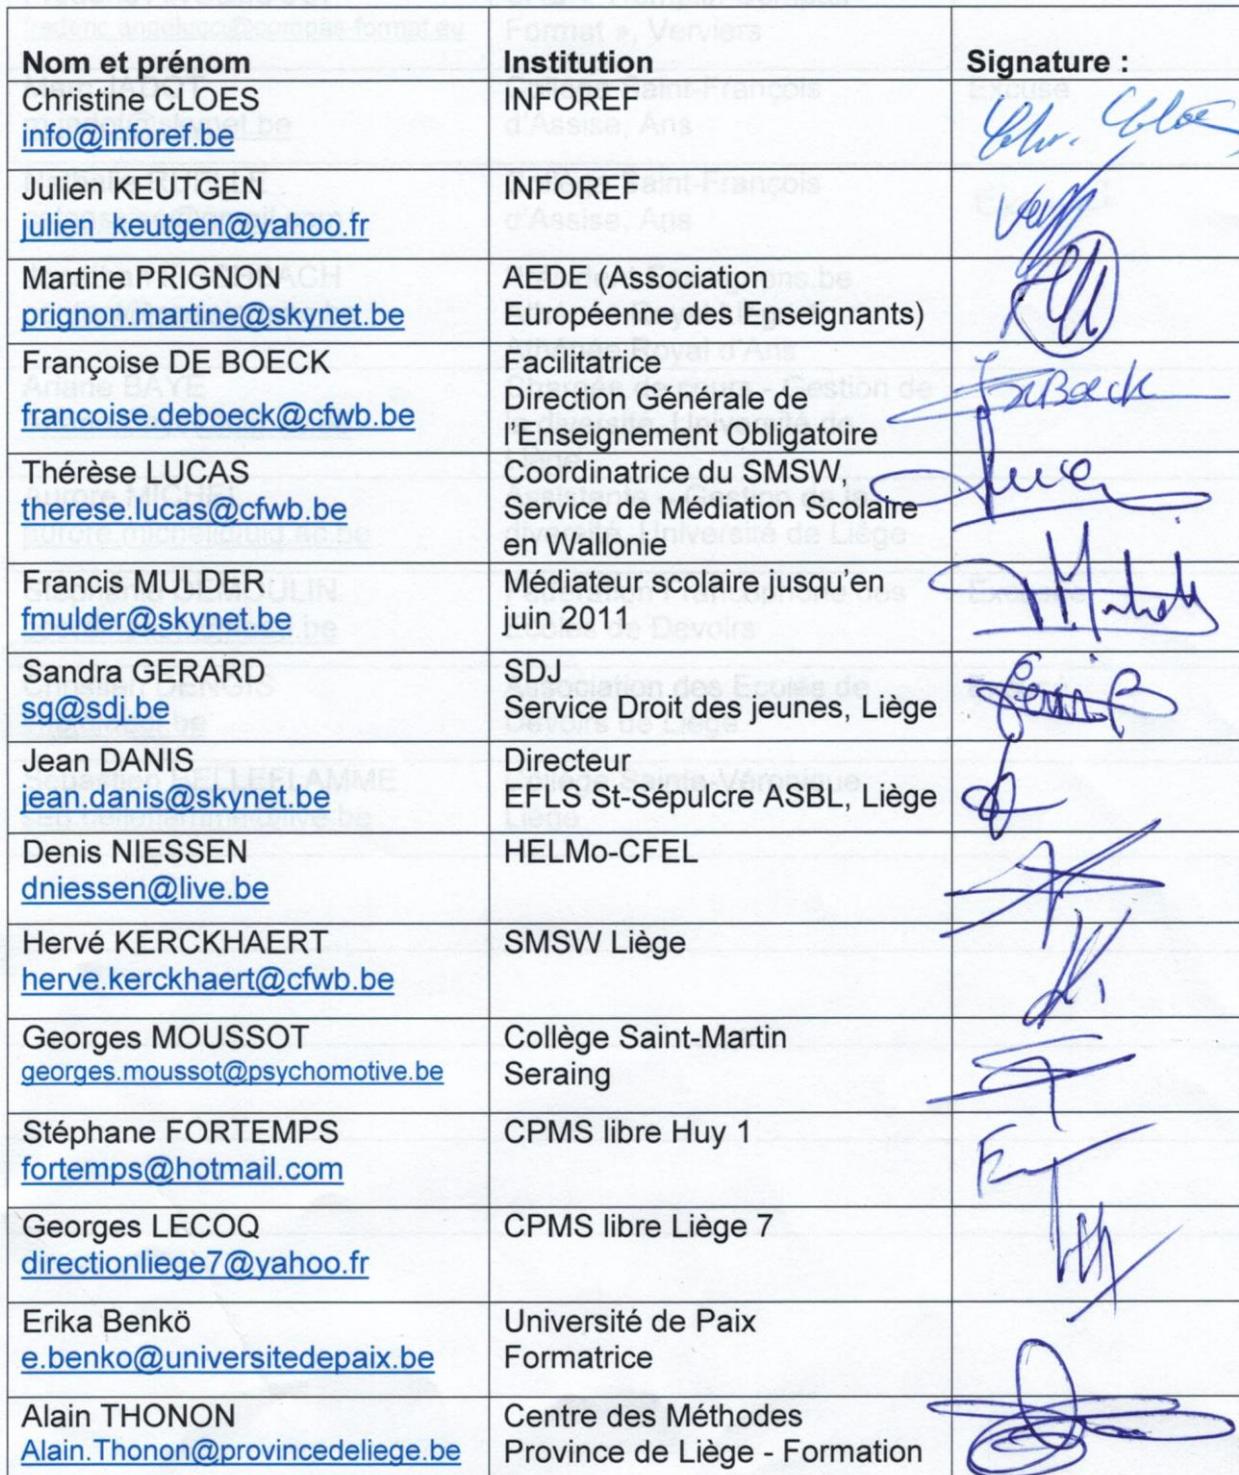 Nom et prénom
Institution
Signature :
Christine CLOES
info@inforef.be
INFOREF
Chr. Cloes
Julien KEUTGEN
julien_keutgen@yahoo.fr
INFOREF
Martine PRIGNON
prignon.martine@skynet.be
AEDE (Association
Européenne des Enseignants)
Françoise DE BOECK
francoise.deboeck@cfwb.be
Facilitatrice
Direction Générale de
l'Enseignement Obligatoire
DeBoeck
Thérèse LUCAS
therese.lucas@cfwb.be
Coordinatrice du SMSW,
Service de Médiation Scolaire
en Wallonie
Francis MULDER
fmulder@skynet.be
Médiateur scolaire jusqu'en
juin 2011
Sandra GERARD
sg@sdj.be
SDJ
Service Droit des jeunes, Liège
Jean DANIS
jean.danis@skynet.be
Directeur
EFLS St-Sépulcre ASBL, Liège
Denis NIESSEN
dniessen@live.be
HELMo-CFEL
Hervé KERCKHAERT
herve.kerckhaert@cfwb.be
SMSW Liège
Georges MOUSSOT
georges.moussot@psychomotive.be
Collège Saint-Martin
Seraing
Stéphane FORTEMPS
fortemps@hotmail.com
CPMS libre Huy 1
Georges LECOQ
directionliege7@yahoo.fr
CPMS libre Liège 7
Erika Benkö
e.benko@universitedepaix.be
Université de Paix
Formatrice
Alain THONON
Alain.Thonon@provincedeliege.be
Centre des Méthodes
Province de Liège - Formation